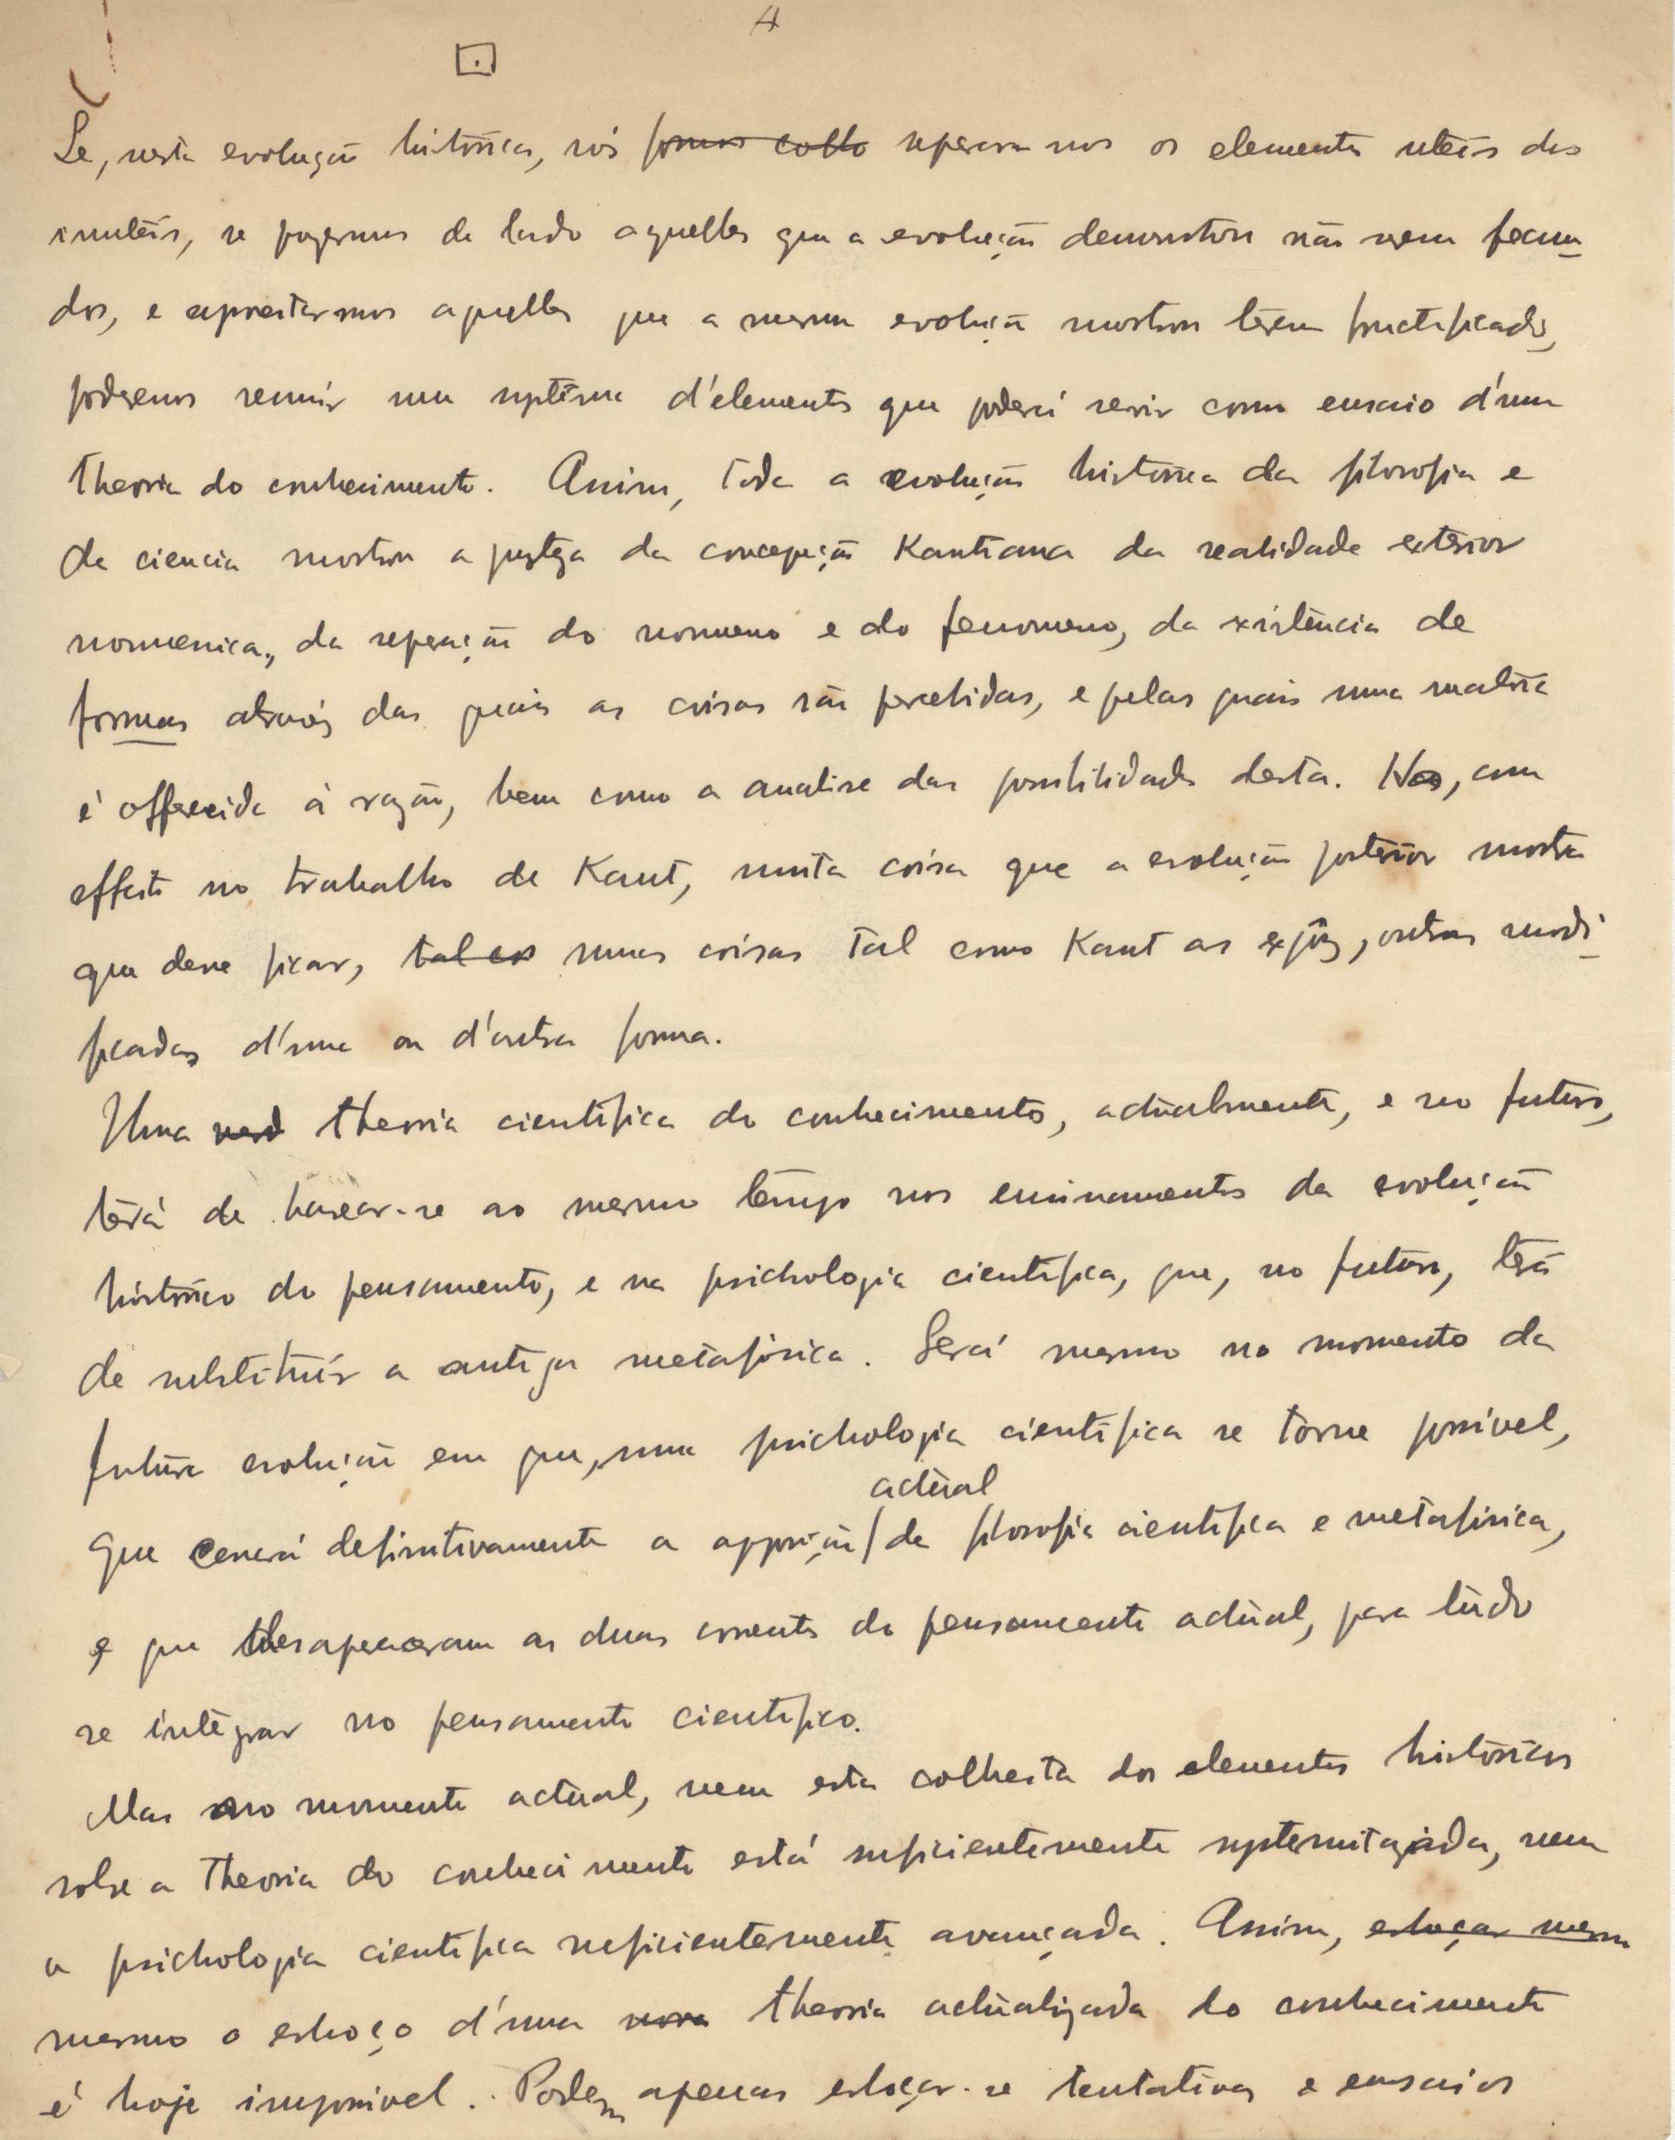 4
Se, nesta evolução histórica, nós formos separarmos os elementos uteis dos
inuteis, se pozermos de lado aquelles que a evolução demonstrou não serem fecun-
dos, e aproveitarmos aquelles que a mesma evolução mostrou terem fructificado,
poderemos reunir um systema d'elementos que poderá servir como ensaio d'uma
theoria do conhecimento. Assim, toda a evolução historica da filosofia e
da ciencia mostrou a justeza da concepção Kantiana da realidade exterior
noumenica, da separação do noumeno e do fenomeno, da existência de
formas atravéz das quais as coisas são percebidas, e pelas quais uma matéria
é offerecida à razão, bem como a analise das possibilidades desta. Ha, com
effeito no trabalho de Kant, muita coisa que a evolução posterior mostra
que deve ficar, tal co numas coisas tal como Kant as expôz, outras modi-
ficadas d'uma ou d'outra forma.
Uma theoria cientifica do conhecimento, actualmente, e no futuro,
terá de basear-se ao mesmo tempo nos ensinamentos da evolução
histórico do pensamento, e na psichologia cientifica, que, no futuro, terá
de substituír a antiga metafisica. Será mesmo no momento da
futura evolução em que, uma psichologia cientifica se torne possivel,
actual
que cessará definitivamente a opposição / da filosofia cientifica e metafisica,
e que desapareceram as duas correntes do pensamento actual, para tudo
se intègrar no pensamento cientifico.
Mas no momento actual, nem esta colheita dos elementos históricos
sobre a theoria do conhecimento está suficientemente systemitazada, nem
a psichologia cientifica suficientemente avançada. Assim, esboçar mesm
mesmo o esboço d'uma nova theoria actualizada do conhecimento
é hoje impossivel. Podem apenas esboçar-se tentativas e ensaios